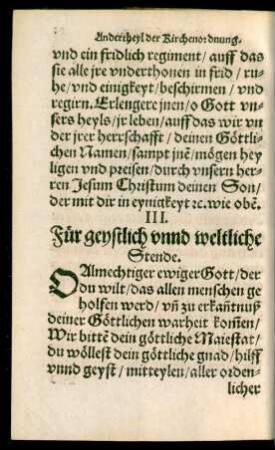 Ander theyl der Kirchenordnung.
vnd ein fridlich regiment / auff das
sie alle jre vnderthonen in frid / ru-
he / vnd einigkeyt / beschirmen / vnd
regirn. Erlengere jnen / o Gott vn-
sers heyls / jr leben / auff das wir vn
der jrer herrschafft / deinen Göttli-
chen Namen / sampt jnē / mögen hey
ligen vnd preisen / durch vnsern her-
ren Jesum Christum deinen Son /
der mit dir in eynigkeyt ꝛc. wie obē.
III.
Für geystlich vnnd weltliche
Stende.
O Almechtiger ewiger Gott / der
du wilt / das allen menschen ge
holfen werd / vn̄ zu erkañtnuß
deiner Göttlichen warheit kom̄en /
Wir bittē dein göttliche Maiestat /
du wöllest dein göttliche gnad / hilff
vnnd geyst / mitteylen / aller orden-
licher